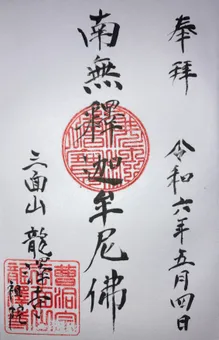 奉拝
令和六年五月四日
南無釋迦牟尼佛
三面山 龍澤寺
曹洞宗